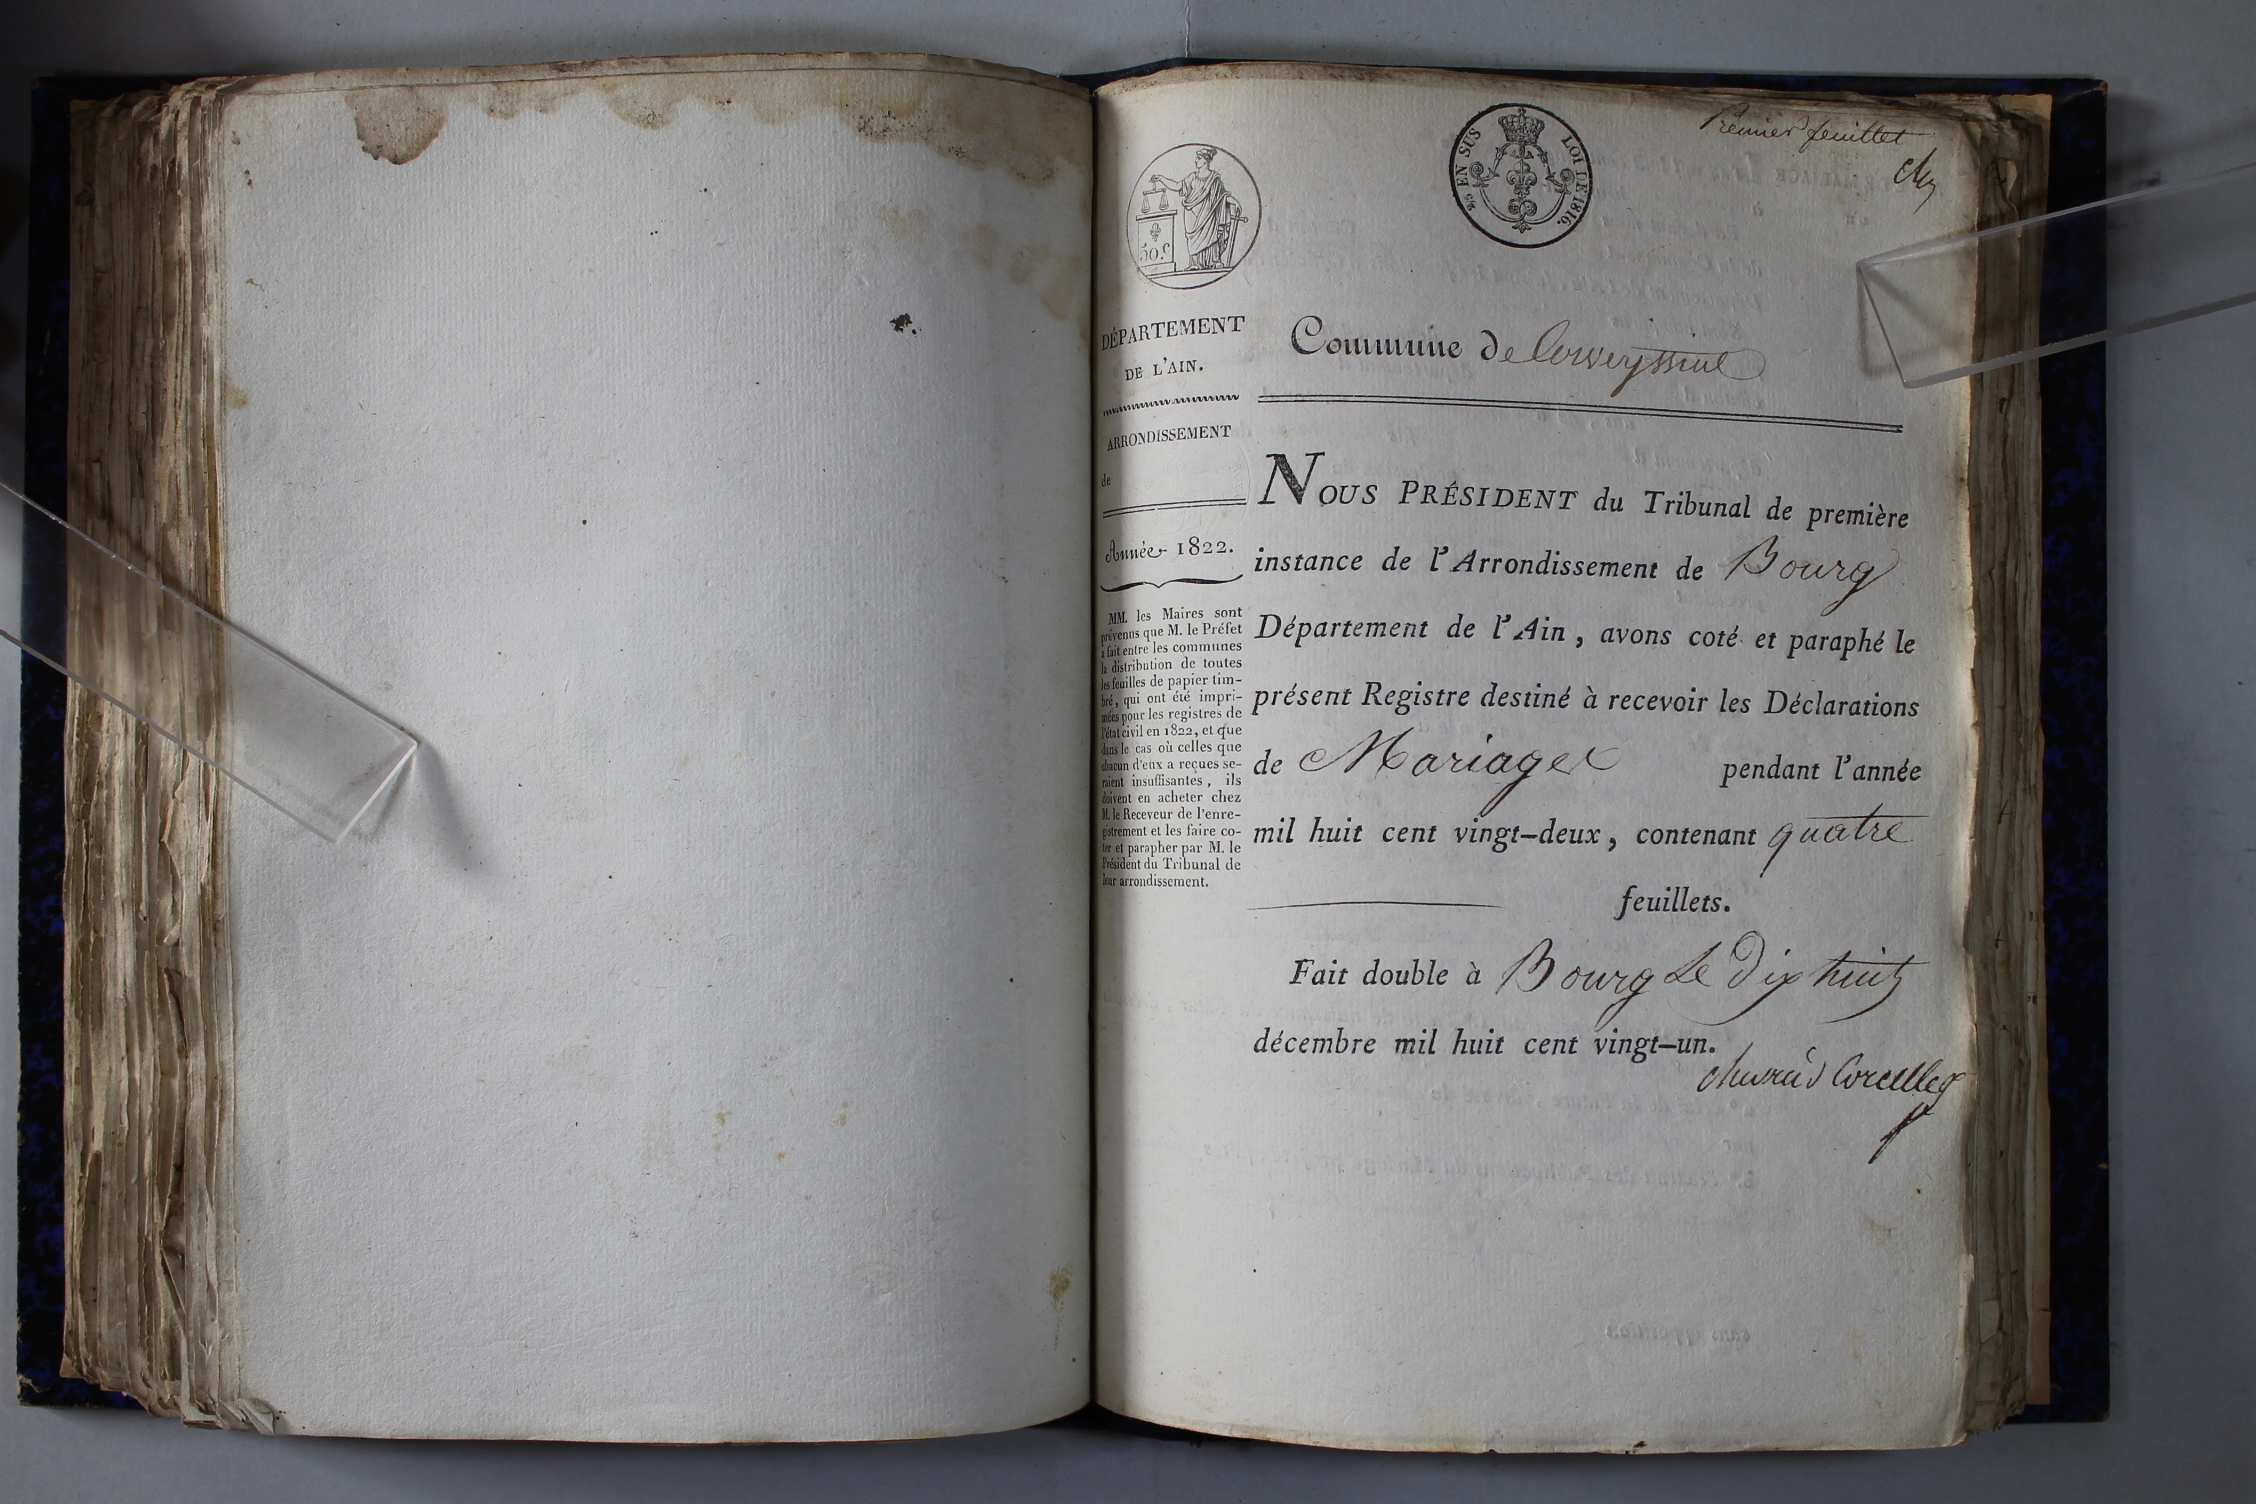 Premier feuillet
¼ EN SUS LOI DE 1816.
50.c
DÉPARTEMENT
DE L'AIN.
ARRONDISSEMENT
de
Année 1822.
MM. les Maires sont
prévenus que M. le Préfet
a fait entre les communes
la distribution de toutes
les feuilles de papier tim-
bré, qui ont été impri-
mées pour les registres de
l'état civil en 1822, et que
dans le cas où celles que
chacun d'eux a reçues se-
raient insuffisantes, ils
doivent en acheter chez
M. le Receveur de l'enre-
gistrement et les faire co-
ter et parapher par M. le
Président du Tribunal de
leur arrondissement.
Commune de Corveyssiat
NOUS PRÉSIDENT du Tribunal de première
instance de l'Arrondissement de Bourg
Département de l'Ain, avons coté et paraphé le
présent Registre destiné à recevoir les Déclarations
de Mariages pendant l'année
mil huit cent vingt-deux, contenant quatre
feuillets.
Fait double à Bourg Le Dix huit
décembre mil huit cent vingt-un.